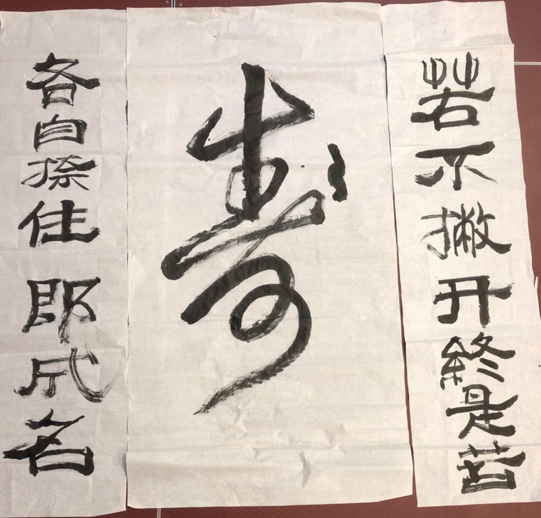 若不撇开終是苦
各自捺住即成名